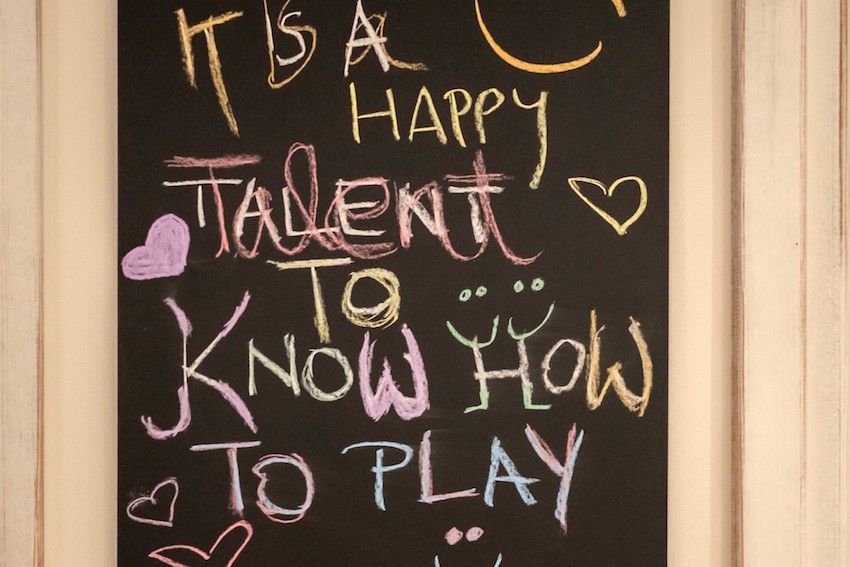 IT IS A
HAPPY
TALENT
TO
KNOW HOW
TO PLAY